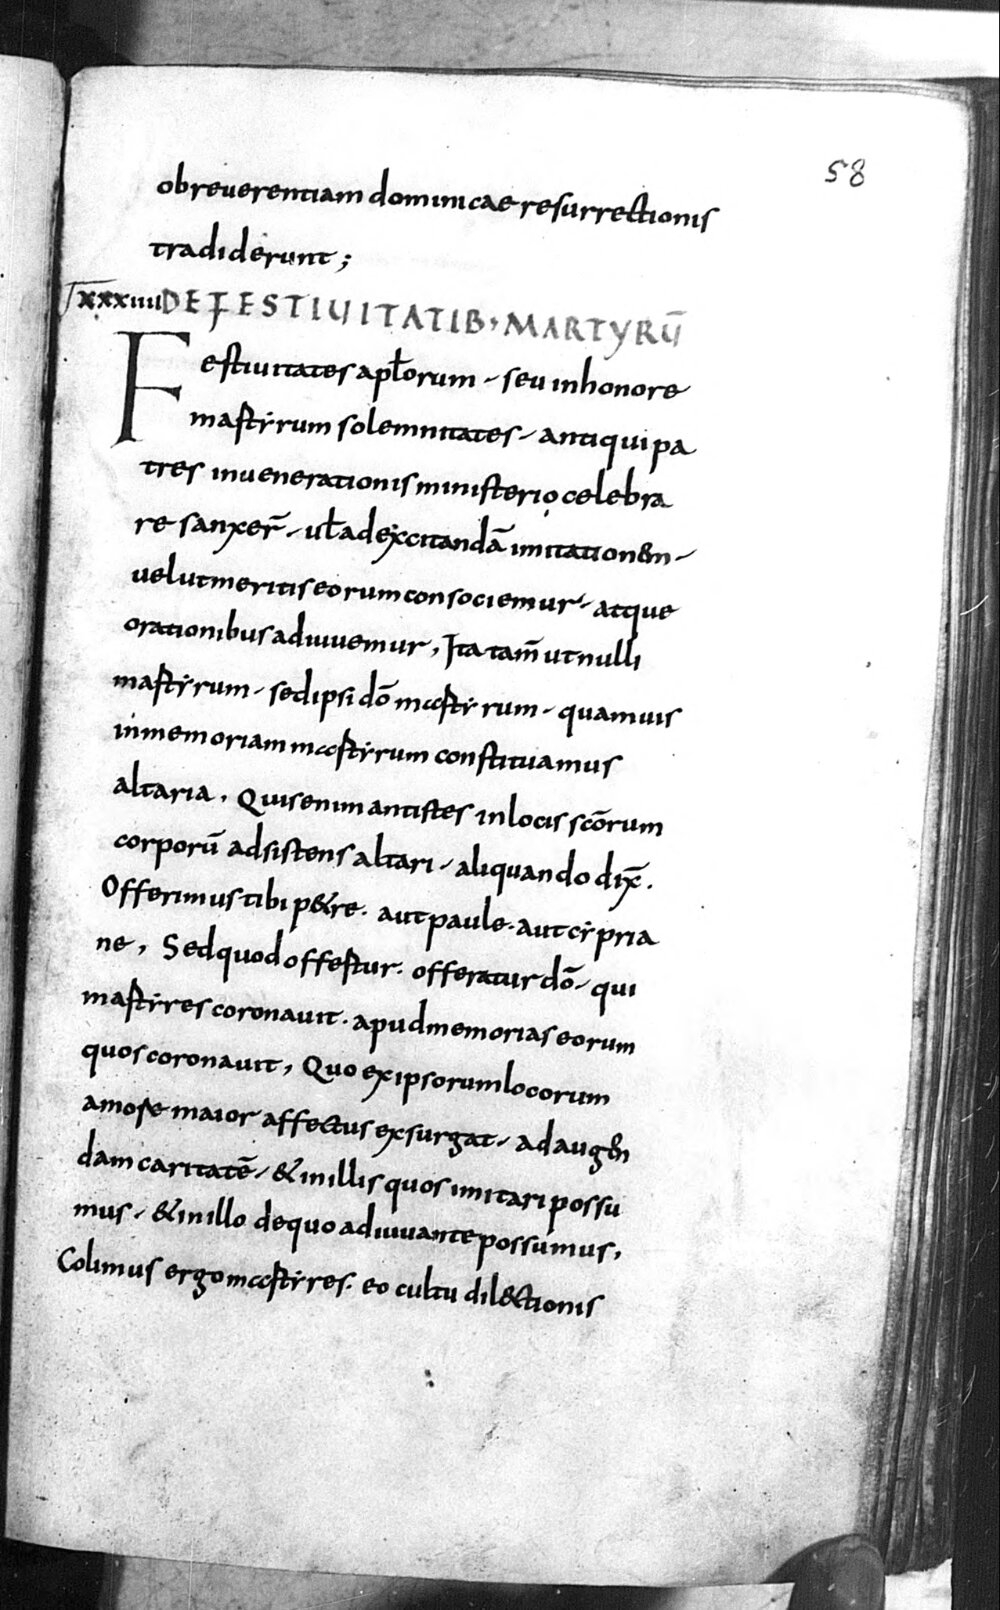 58
ob reuerentiam dominicae resurrectionis
tradiderunt;
xxxiiii DE FESTIUITATIB· MARTYRŪ
Festiuitates apłorum seu inhonore
martẏrum solemnitates antiqui pa
tres inuenerationis ministerio celebra
re sanxer̄ uł ad excitandā imitationem
uel ut meritis eorum consociemur atque
orationibus adiuuemur, Ita tam̄ ut nulli
martẏrum sed ipsi dō martẏrum quamuis
inmemoriam martẏrum constituamus
altaria, Quis enim antistes inlocis scōrum
corporū adsistens altari aliquando dix̄.
Offerimus tibi p&re. aut paule. aut cẏpria
ne, Sed quod offertur. offeratur dō qui
martẏres coronauit. apud memorias eorum
quos coronauit, Quo ex ipsorum locorum
amore maior affectus exsurgat ad augen
dam caritatē & inillis quos imitari possu
mus & inillo de quo adiuuante possumus,
Colimus ergo martẏres. eo cultu dil&ctionis